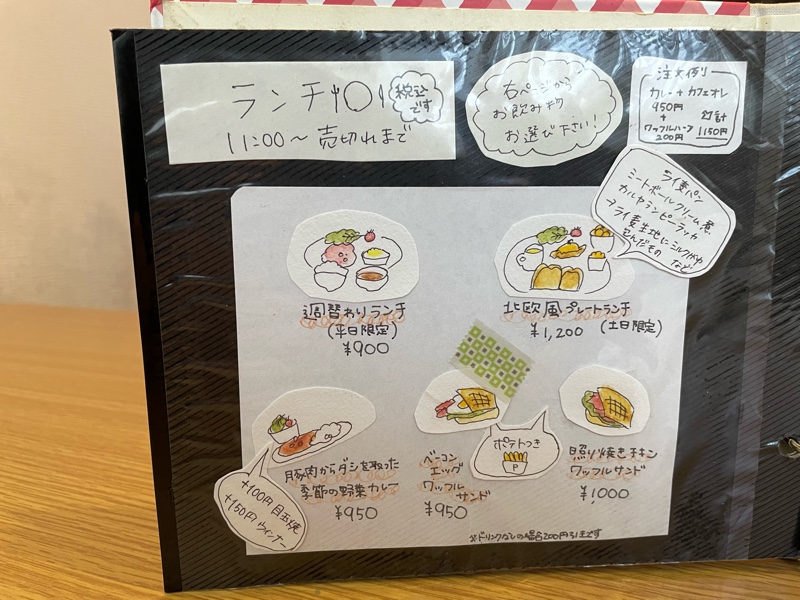 ランチ
税込
です
11:00〜売切れまで
右ページから
お飲み物
お選び下さい！
注文例
カレー + カフェオレ
950円
+
ワッフルハーフ
200円
合計
1150円
ライ麦パン
ミートボールクリーム煮
カルヤランピーラッカ
→ライ麦生地にミルクがゆ
包んだもの など
週替わりランチ
(平日限定)
¥900
北欧風プレートランチ
¥1,200 (土日限定)
豚肉からダシを取った
季節の野菜カレー
¥950
+100円 目玉焼
+150円 ウィンナー
ベーコン
エッグ
ワッフル
サンド
¥950
ポテトつき
P
照り焼きチキン
ワッフルサンド
¥1,000
※ドリンクなしの場合200円引きです